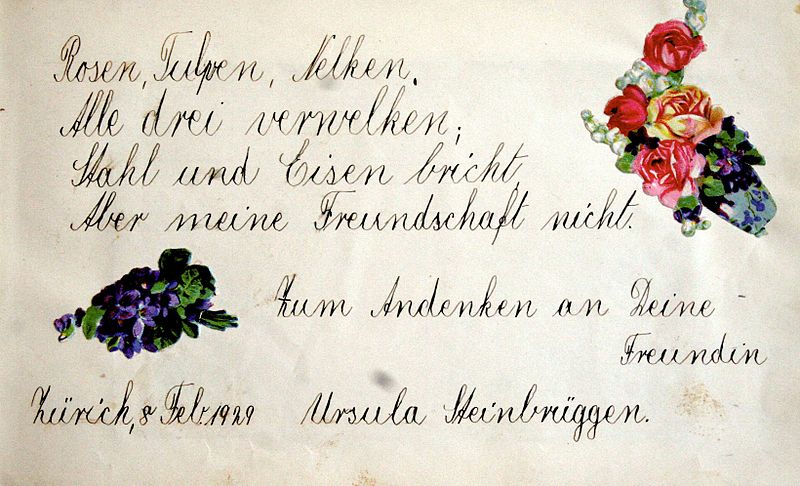 Rosen, Tulpen, Nelken.
Alle drei verwelken;
Stahl und Eisen bricht,
Aber meine Freundschaft nicht.
Zum Andenken an Deine
Freundin
Zürich, 8 Feb. 1929 Ursula Steinbrüggen.